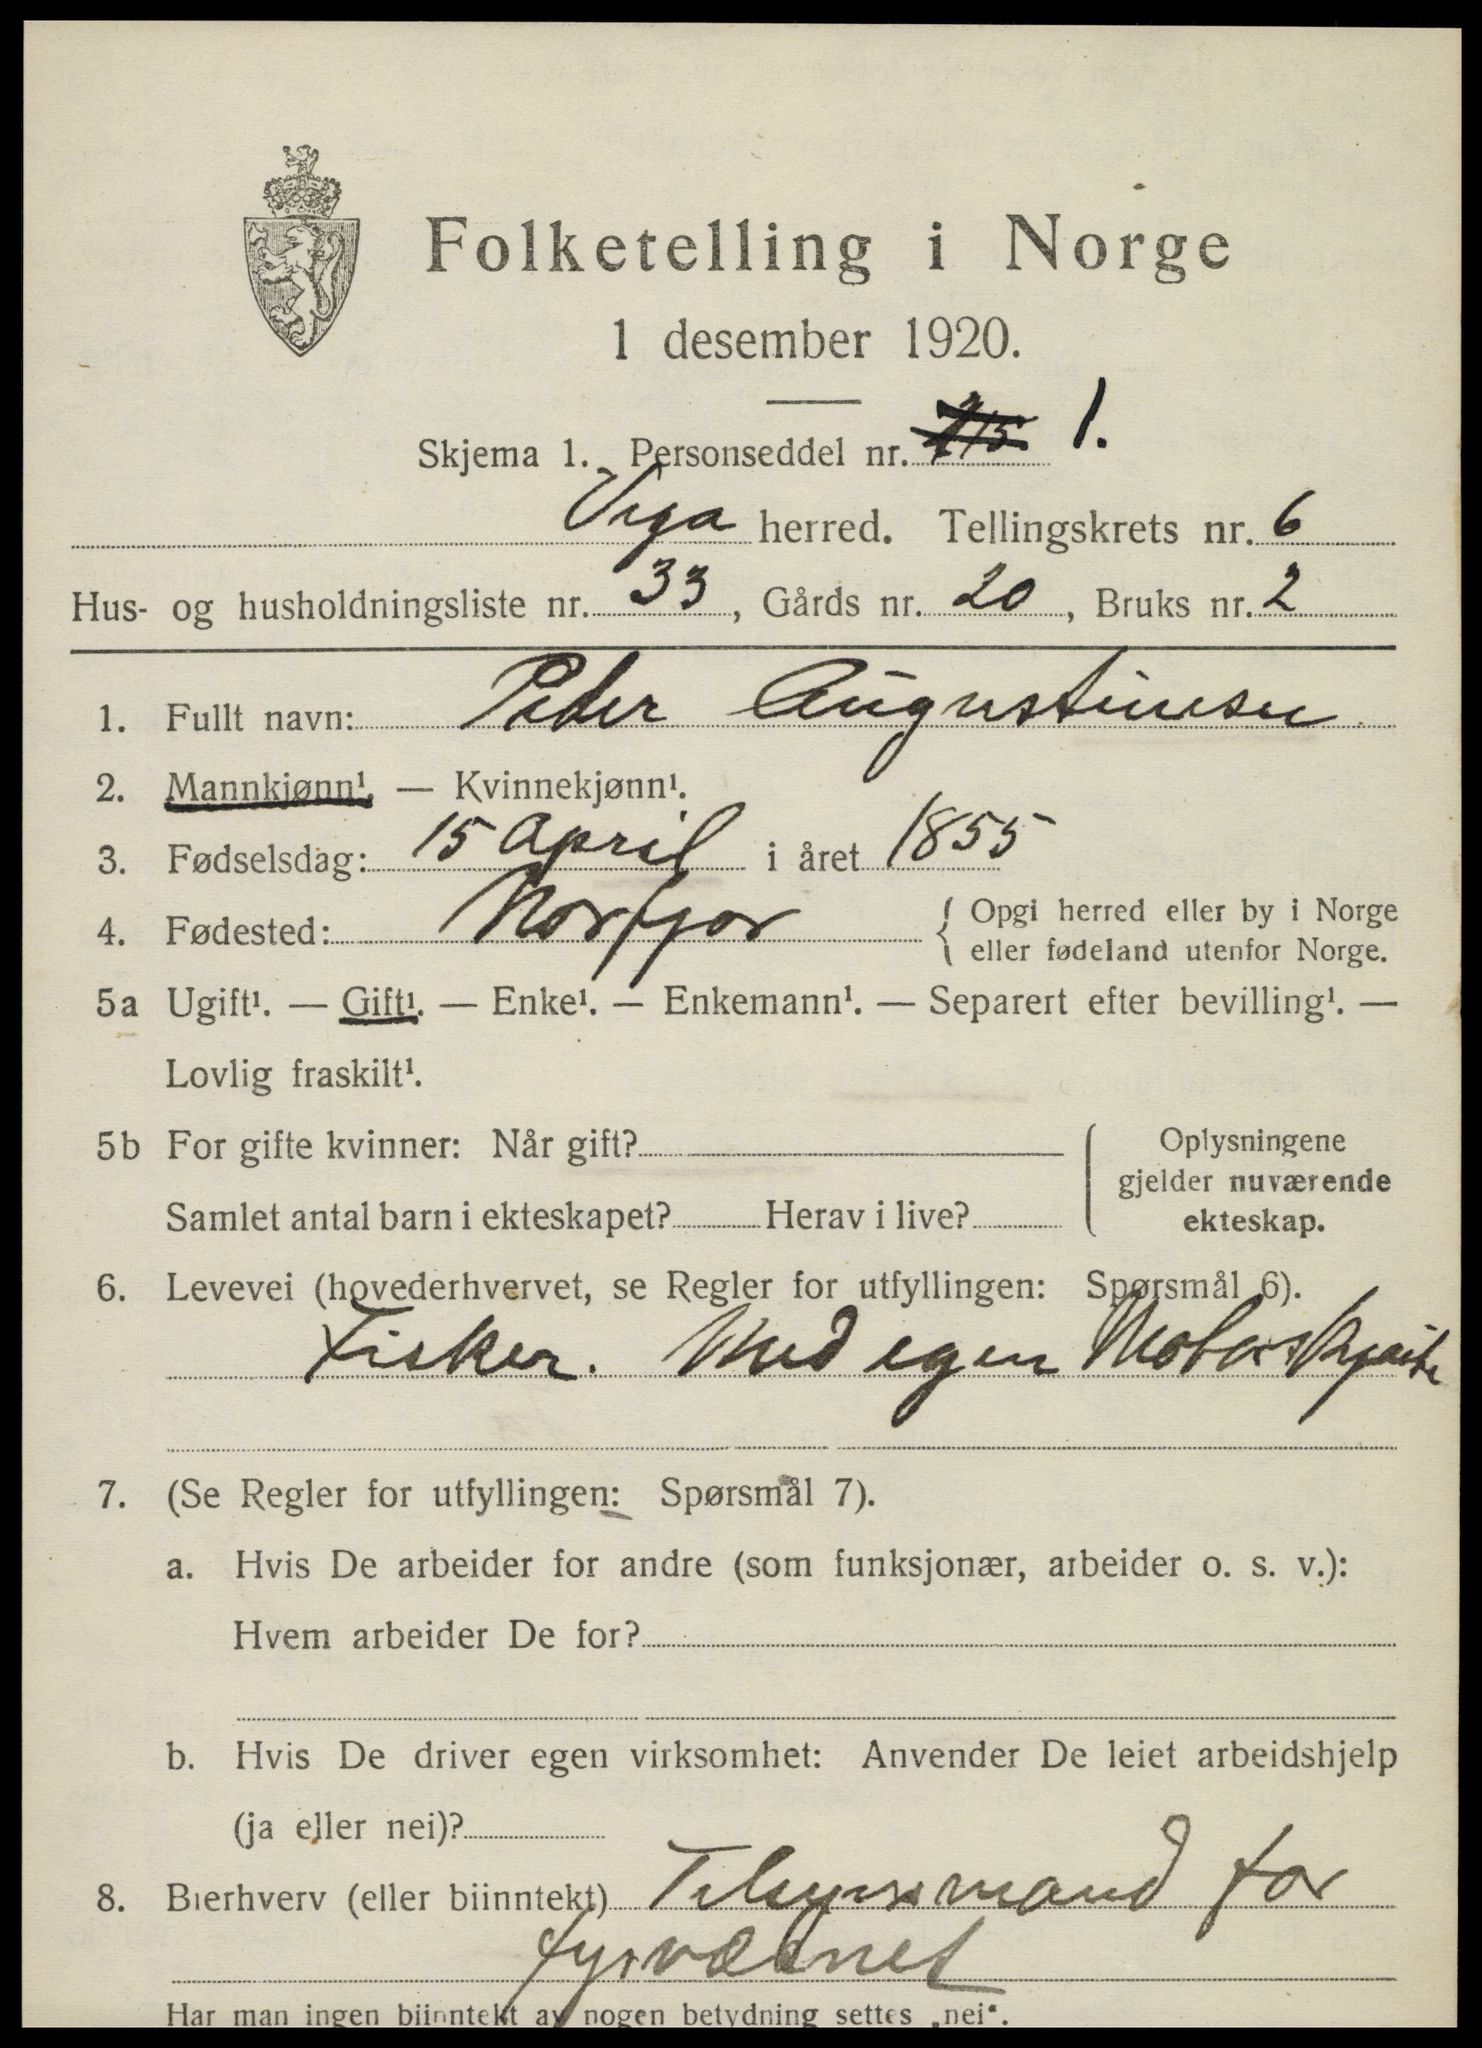 Folketelling i Norge
1 desember 1920.
Skjema 1. Personseddel nr. 1.
Vega herred. Tellingskrets nr. 6
Hus- og husholdningsliste nr. 33, Gårds nr. 20, Bruks nr. 2
1. Fullt navn: Peder Augustinsen
2. Mannkjønn¹. — Kvinnekjønn¹.
3. Fødselsdag: 15 April i året 1855
4. Fødested: Norfjor { Opgi herred eller by i Norge
eller fødeland utenfor Norge.
5a Ugift¹. — Gift¹. — Enke¹. — Enkemann¹. — Separert efter bevilling¹. —
Lovlig fraskilt¹.
5b For gifte kvinner: Når gift? { Oplysningene
gjelder nuværende
Samlet antal barn i ekteskapet? Herav i live? ekteskap.
6. Levevei (hovederhvervet, se Regler for utfyllingen: Spørsmål 6).
Fisker. Med egen Motorskjøite
7. (Se Regler for utfyllingen: Spørsmål 7).
a. Hvis De arbeider for andre (som funksjonær, arbeider o. s. v.):
Hvem arbeider De for?
b. Hvis De driver egen virksomhet: Anvender De leiet arbeidshjelp
(ja eller nei)?
8. Bierhverv (eller biinntekt) Tilsynsmand for
fyrvæsnet
Har man ingen biinntekt av nogen betydning settes „nei“.